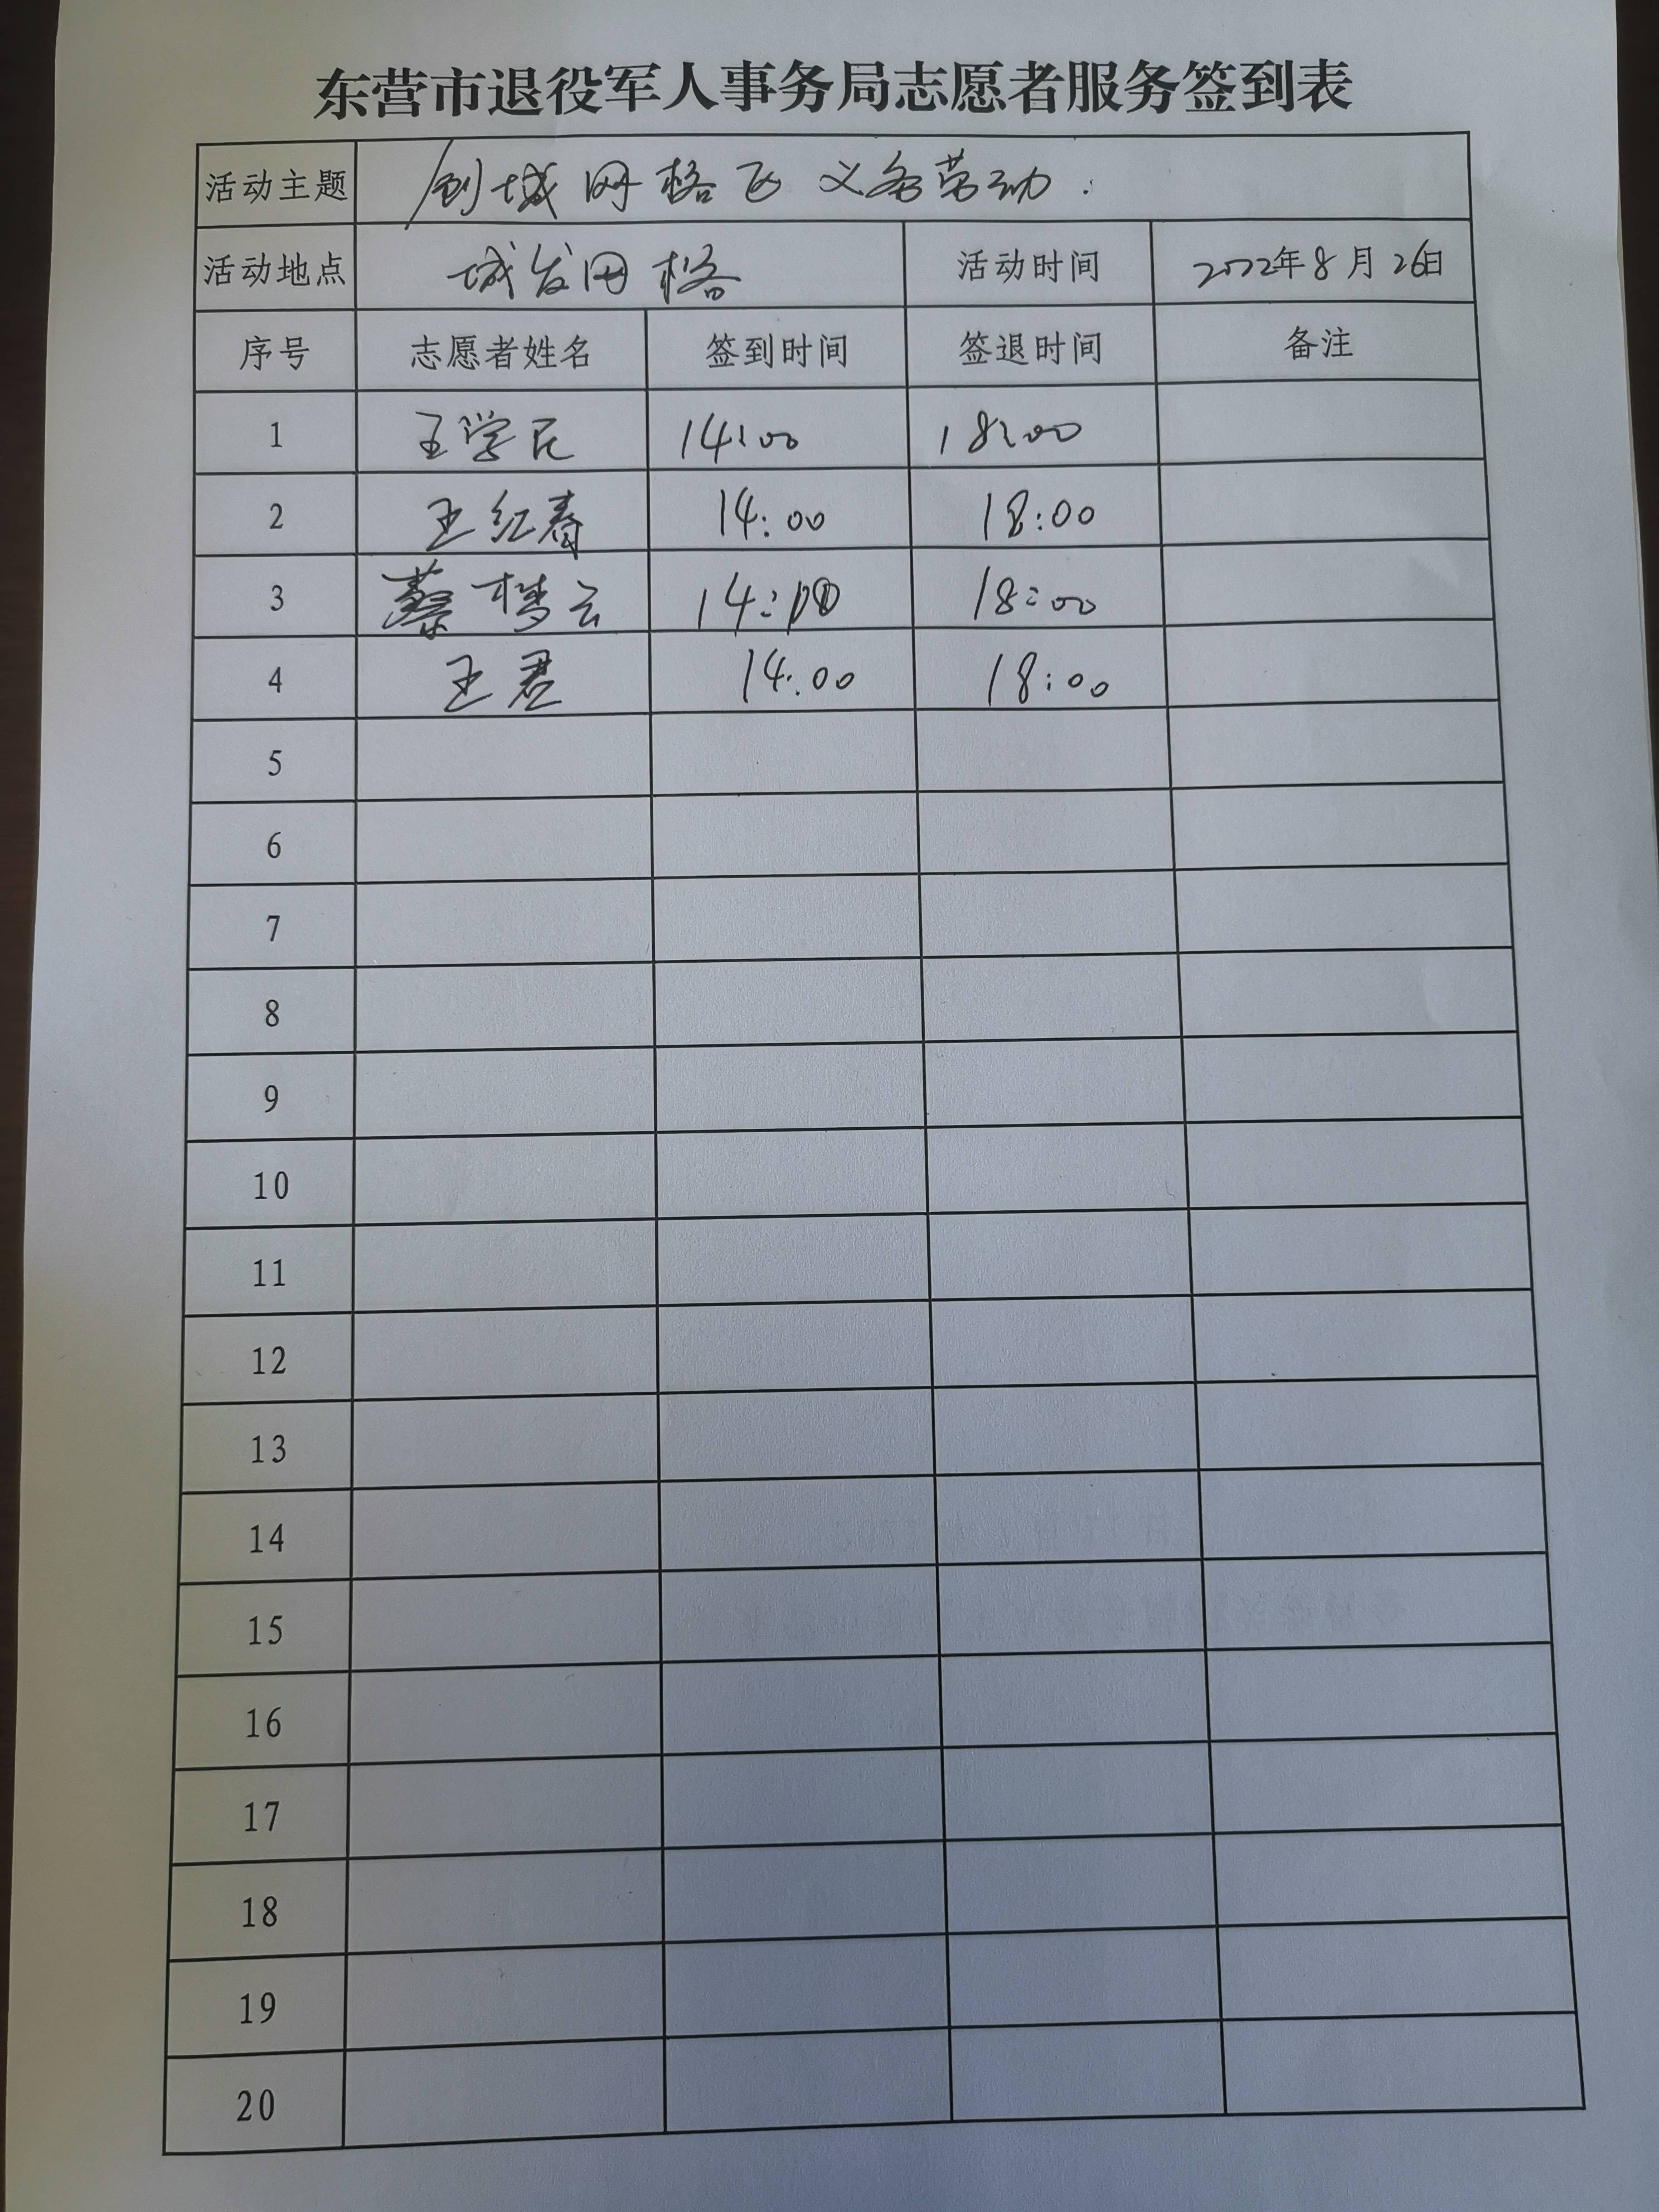 东营市退役军人事务局志愿者服务签到表
活动主题 创城网格区义务劳动.
活动地点 城发网格 活动时间 2022年8月26日
序号 志愿者姓名 签到时间 签退时间 备注
1 王学民 14:00 18:00
2 王红春 14:00 18:00
3 蔡梦云 14:00 18:00
4 王君 14:00 18:00
5
6
7
8
9
10
11
12
13
14
15
16
17
18
19
20